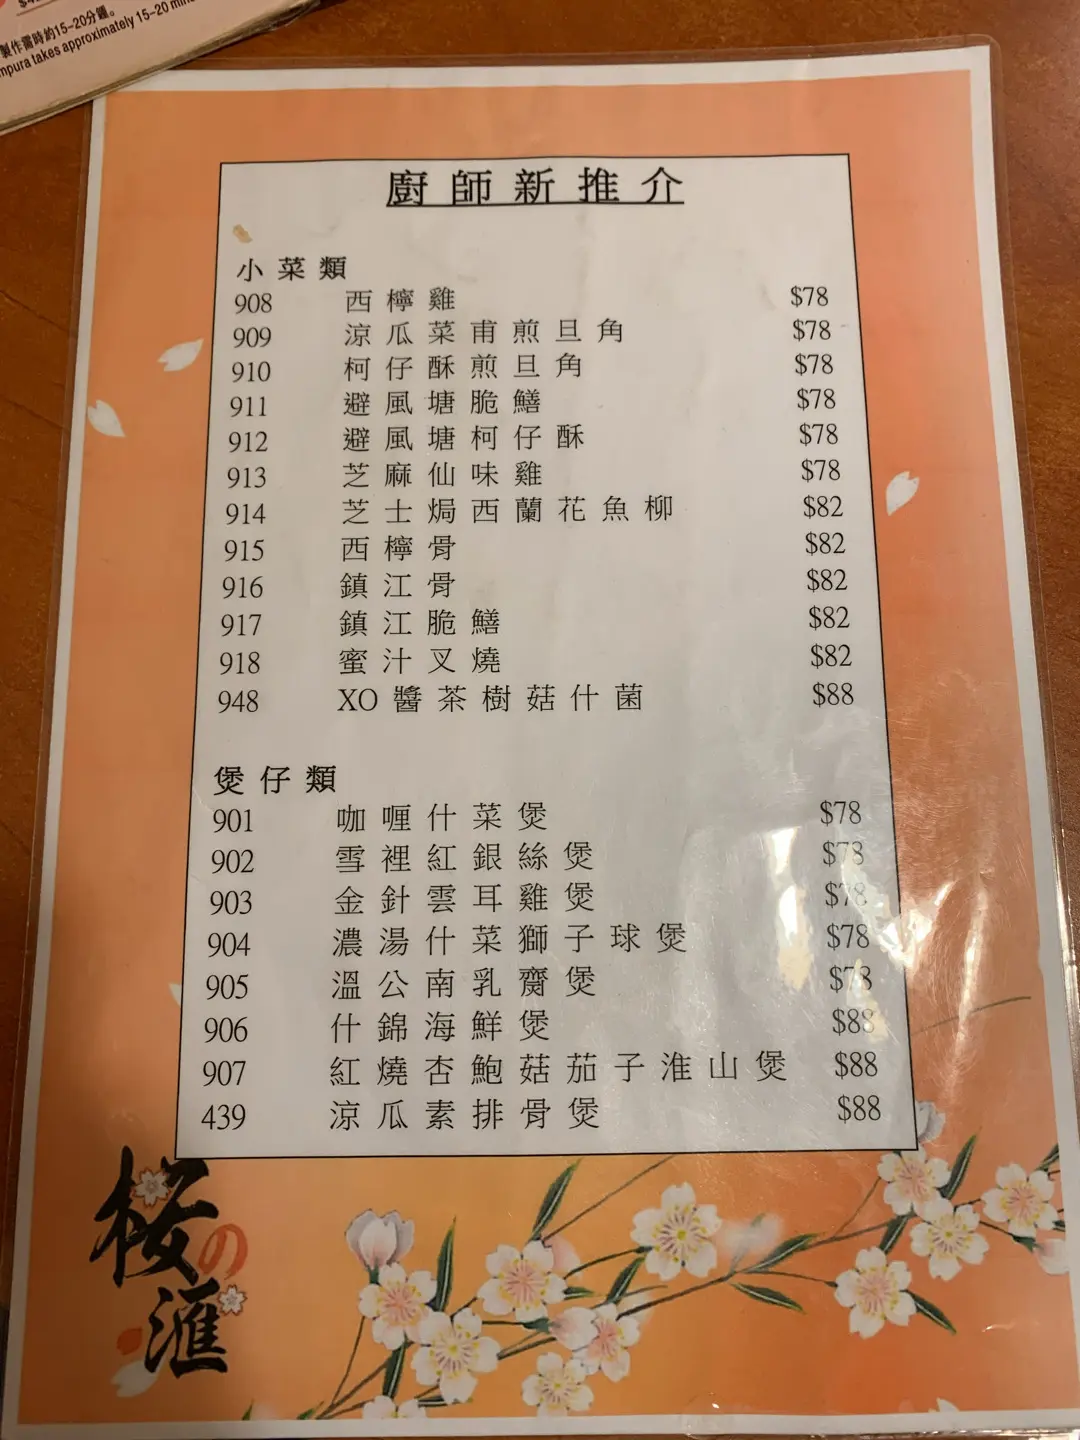 製作需時約15-20分鐘。
mpura takes approximately 15-20 min
廚師新推介
小菜類
908 西檸雞 $78
909 涼瓜菜甫煎旦角 $78
910 柯仔酥煎旦角 $78
911 避風塘脆鱔 $78
912 避風塘柯仔酥 $78
913 芝麻仙味雞 $78
914 芝士焗西蘭花魚柳 $82
915 西檸骨 $82
916 鎮江骨 $82
917 鎮江脆鱔 $82
918 蜜汁叉燒 $82
948 XO醬茶樹菇什菌 $88
煲仔類
901 咖喱什菜煲 $78
902 雪裡紅銀絲煲 $78
903 金針雲耳雞煲 $78
904 濃湯什菜獅子球煲 $78
905 溫公南乳齋煲 $78
906 什錦海鮮煲 $88
907 紅燒杏鮑菇茄子淮山煲 $88
439 涼瓜素排骨煲 $88
桜の
滙